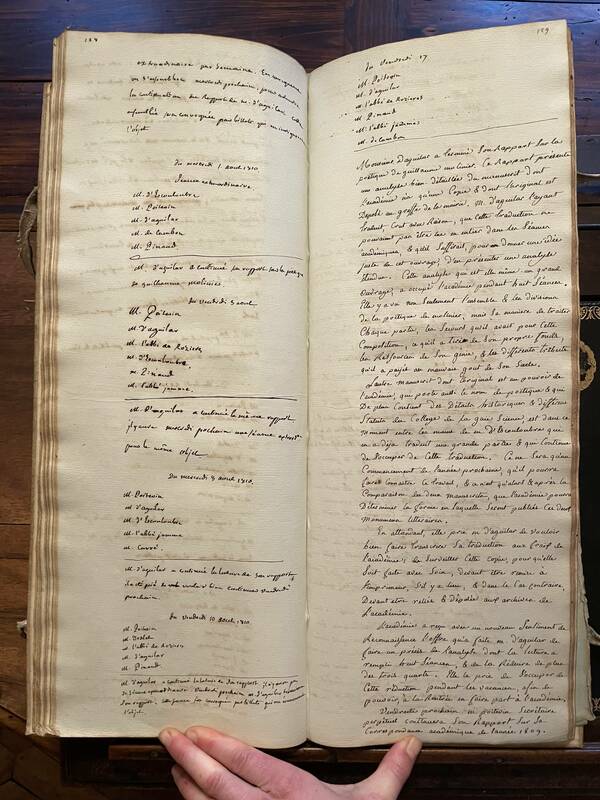 128
extraordinaire par semaine. En conséquence
on s'assemblera mercredi prochain, pour entendre
la continuation du Rapport de m. d'aguilar. Cette
assemblée sera convoquée par billets qui en indiqueront
l'objet.
Du mercredi 1 août 1810.
Séance extraordinaire.
M. d'Escouloubre.
M. Poitevin
M. d'aguilar
M. de Cambon
M. Pinaud
M. d'aguilar a continué son rapport sur la poétique
de guillaume molinier.
du vendredi 3 août.
M. Poitevin
M. d'aguilar
M. l'abbé de Rozieres
M. d'Escouloubre.
M. Pinaud
M. l'abbé jamme.
M. d'aguilar a continué le même rapport
il y aura mercredi prochain une séance
pour le même objet.
Du mercredi 8 août 1810.
M. Poitevin
M. d'aguilar
M. d'Escouloubre
M. l'abbé jamme
M. Carré.
M. d'aguilar a continué la lecture de son rapport
Il a été prié de vouloir bien continuer vendredi
prochain.
Du vendredi 10 août 1810.
M. Poitevin
M.
M. l'abbé de Rozieres
M. d'aguilar
M. Pinaud
M. d'aguilar a continué la lecture de son rapport. Il y aura
séance extraordinaire prochain. M. d'aguilar
son rapport. convoquée par billets qui en
l'objet.
129
Du Vendredi 17
M. Poitevin
M. d'aguilar
M. l'abbé de Rozieres
M. Pinaud
M. l'abbé jamme
M. de Cambon
Monsieur d'aguilar a terminé Son Rapport Sur la
poétique de guillaume molinier. Ce Rapport présente
une analyse bien détaillée du monument dont
l'académie n'a qu'une Copie & dont l'original est
Déposé au greffe de la mairie. M. d'aguilar l'ayant
traduit, crut avec Raison, que cette traduction ne
pouvant pas être lue en entier dans les Séances
académiques, & qu'il Suffirait, pour en donner une idée
juste de cet ouvrage, d'en présenter une analyse
étendue. Cette analyse qui est elle même un grand
ouvrage, a occupé l'académie pendant huit Séances.
Elle y a vu non Seulement l'ensemble & les divisions
de la poétique de molinier, mais Sa manière de traiter
Chaque partie, les Secours qu'il avait pour Cette
Composition, ce qu'il a tiré de Son propre fonds,
les Ressources de Son génie, & les différents tributs
qu'il a payés au mauvais goût de Son Siècle.
L'autre manuscrit dont l'original est au pouvoir de
l'académie, qui porte aussi le nom de poétique & qui
De plus Contient des Détails historiques & différens
Statuts du College de la gaie Science, est dans ce
moment entre les mains de m. d'Escouloubre qui
en a déjà traduit une grande partie & qui Continue
de S'occuper de Cette traduction. Ce ne Sera qu'au
Commencement de l'année prochaine, qu'il pourra
faire connaître Ce travail, & ce n'est qu'alors & après la
Comparaison des deux manuscrits, que l'académie pourra
Déterminer la forme en laquelle Seront publiés Ces deux
Monumens littéraires.
En attendant, elle prie m. d'aguilar de vouloir
bien faire transcrire Sa traduction aux frais de
l'académie, de Surveiller Cette copie, pour qu'elle
Soit faite avec Soin, devant être remise à
l'imprimeur, S'il y a lieu, & dans le Cas contraire,
Devant être reliée & Déposée aux archives de
L'académie.
L'académie a reçu avec un nouveau Sentiment de
Reconnaissance l'offre qu'a faite m. d'aguilar de
faire un précis de l'analyse dont la lecture a
rempli huit Séances, & de la Réduire de plus
des trois quarts. Elle le prie de S'occuper de
Cette réduction pendant les vacances, afin de
pouvoir, à la Rentrée en faire part à l'académie.
Vendredi prochain m. poitevin Secrétaire
perpétuel continuera Son Rapport Sur Sa
Correspondance académique de l'année 1809.